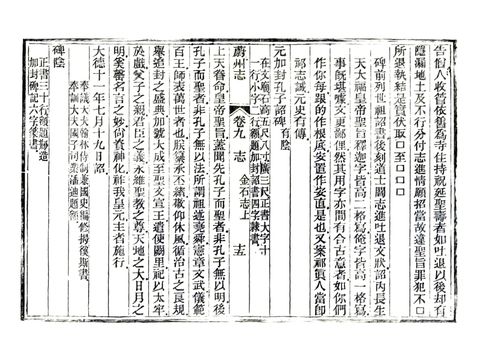 告倒人收管依舊為寺住持祝延聖壽者如吐退以後却有
隱漏地土及不行分付志進情願招當故違聖旨罪犯不□
所退執結是實伏取□至□□□
碑前列世祖詔書後刻道士闕志進吐退文狀詔內長生
天大福皇帝聖旨釋迦字皆高一格寫俺字皆高一格寫
事既堪嗤文更鄙俚然其用字亦間有合古意者如你們
作你每跟的作根底安置作安直是也又案祁真人當即
邱志誠元史有傳
元加封孔子詔碑有陰
在文廟石高五尺八寸廣三尺正書大字十
一行小字八行額題加封詔書四字隸書
蔚州志 卷九 志 金石志上 志五
上天眷命皇帝聖旨蓋聞先孔子而聖者非孔子無以明後
孔子而聖者非孔子無以法所謂祖述堯舜憲章文武儀範
百王師表萬世者也朕纂承丕緒敬仰休風循治古之良規
舉追封之盛典加號大成至聖文宣王遣使闕里祀以太牢
於戲父子之親君臣之義永維聖教之尊天地之大日月之
明奚罄名言之妙尚資神化祚我皇元主者施行
大德十一年七月十九日詔
奉議大夫翰林侍制兼國史編修揭傒斯書
奉訓大夫國子司業潘迪題額
碑陰
正書三十行額題創造
加封碑記六字篆書